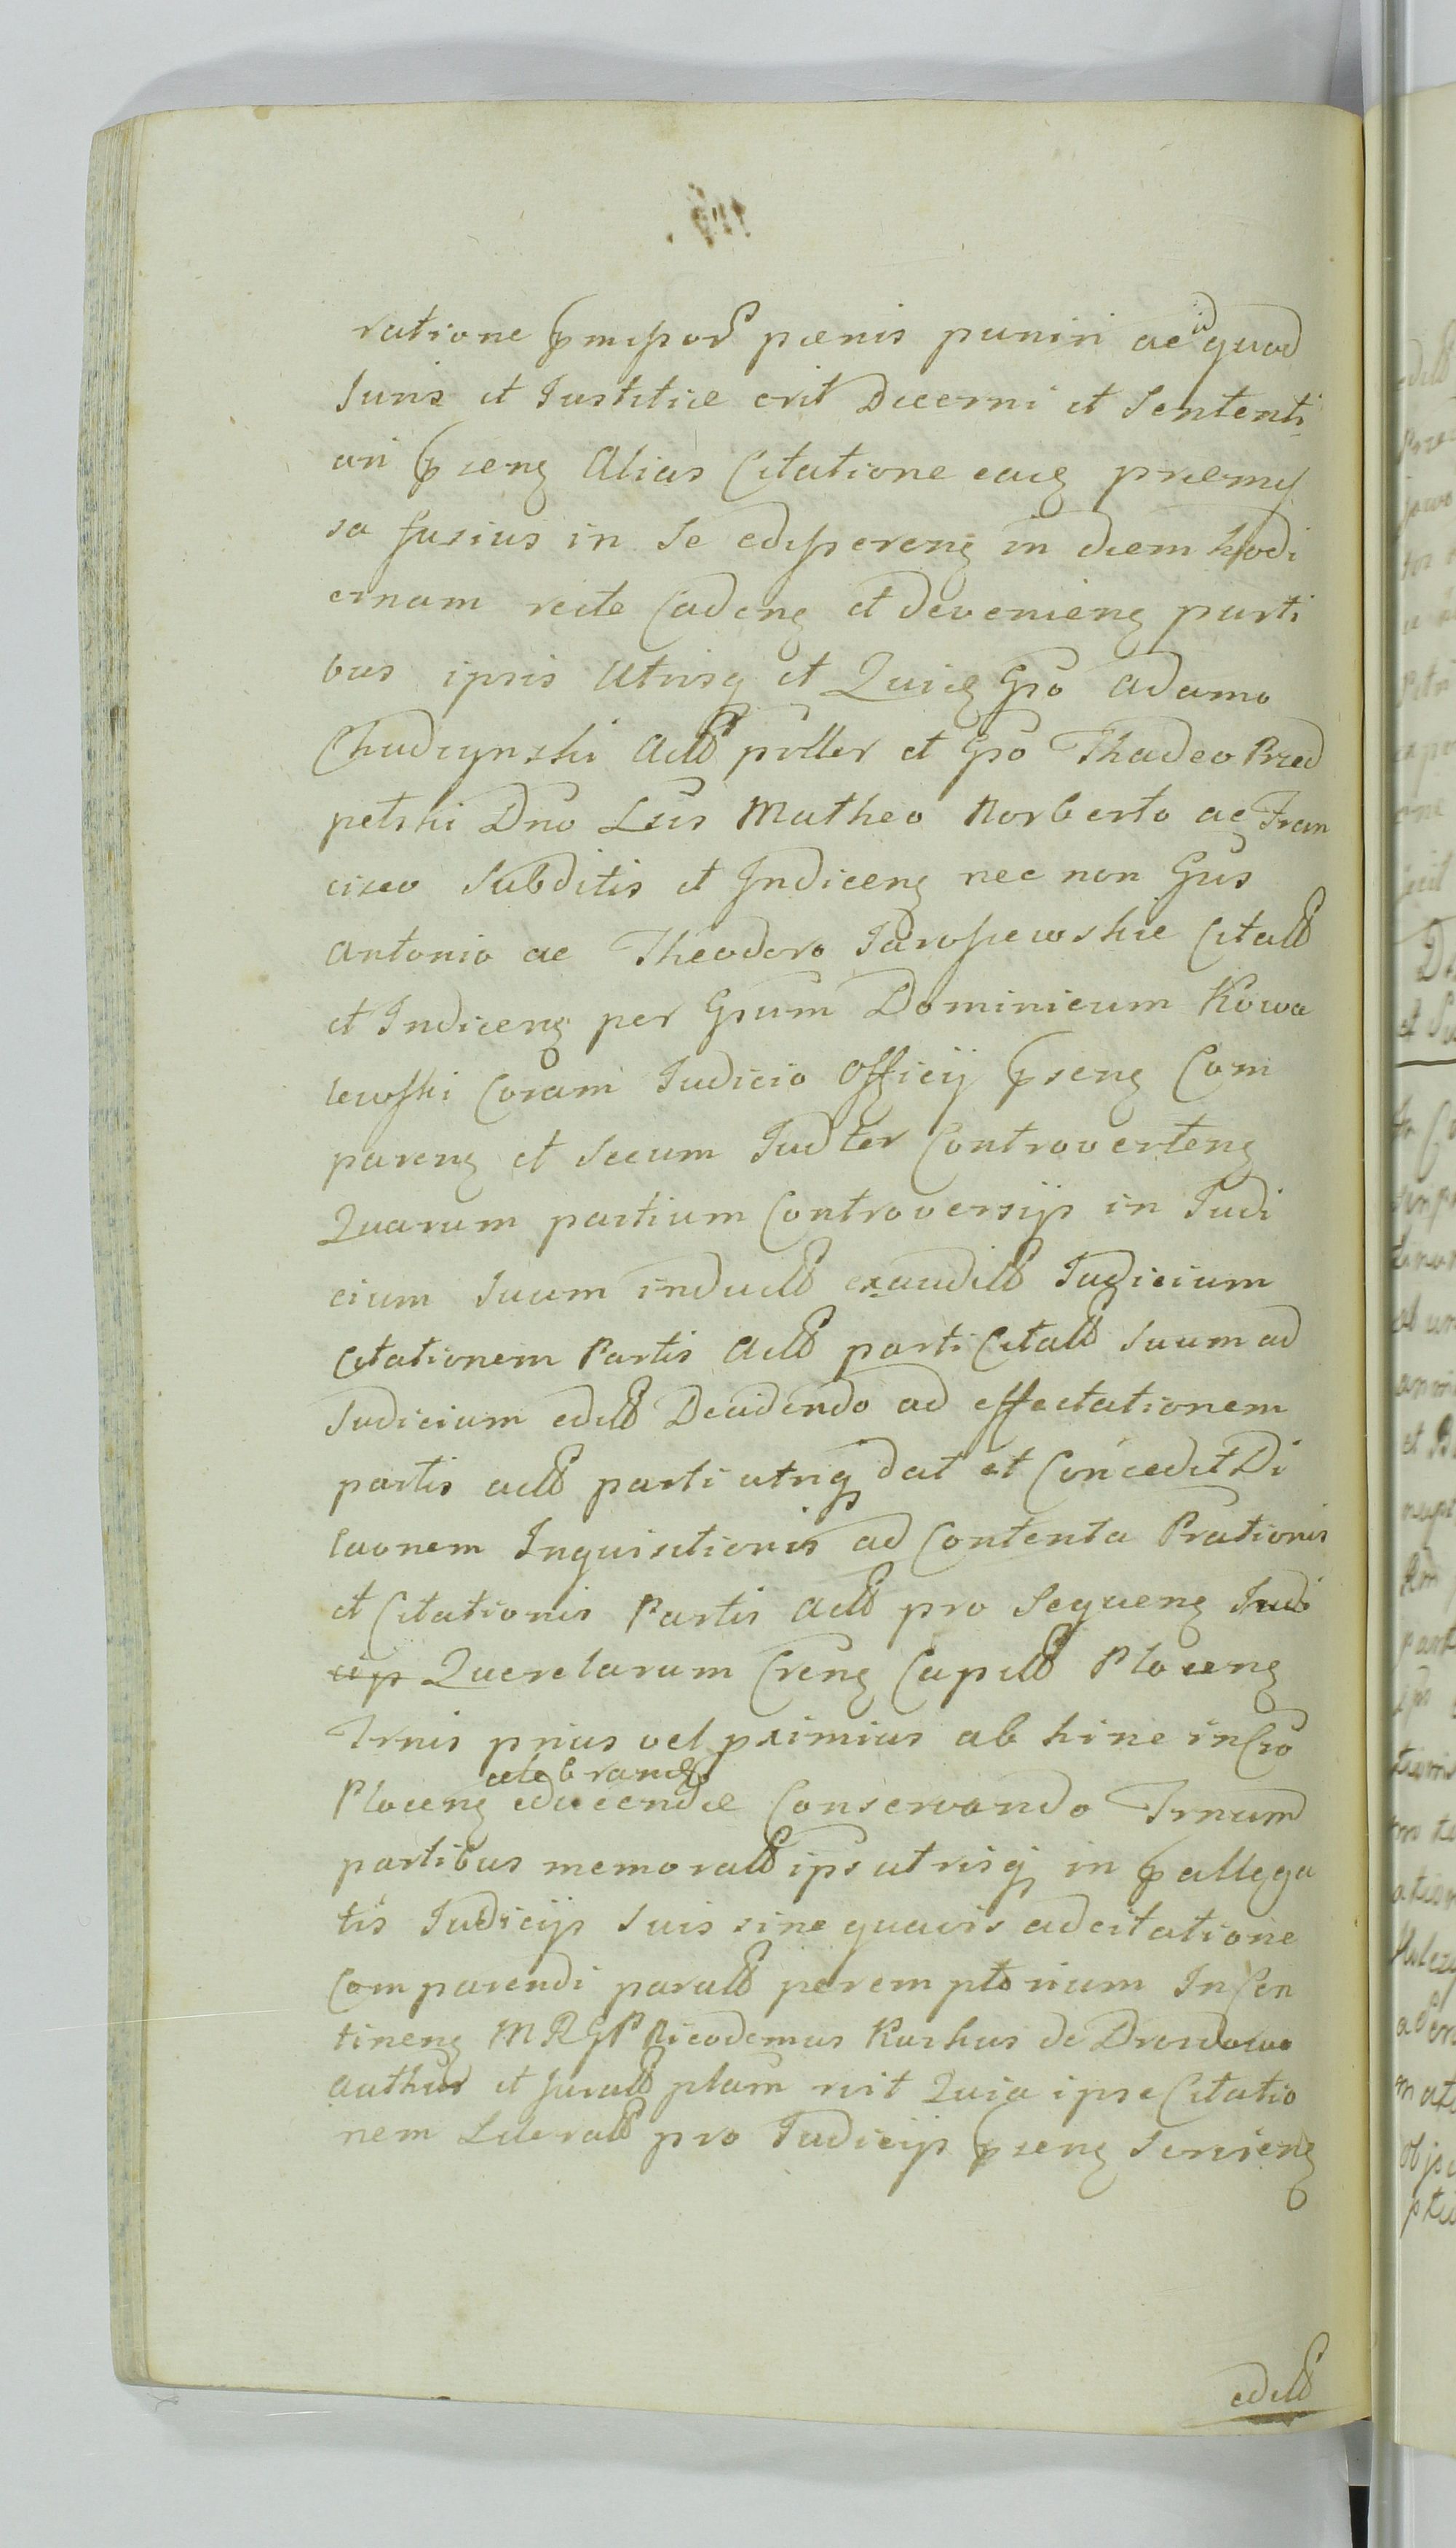 ratione pmissor pœnis puniri ac id quod
Juris et Justitiæ erit Decerni et Sententi
ari pseng Alias Citatione eaq præmis
sa fusius in Se edisereng in diem hodi
ernam recte Cadeng et devenieng parti
bus ipsis Utrisq et Quiq Gso Adamo
Chudzynski Actt pnller et Gso Thadeo
petski Dno Lus Matheo Norberto ac Fran
cisco Subditis et Indiceng nec non Gsis
Antonio ac Theodoro Jarossewskie Citatt
et Indiceng per Gsum Dominicum Kowa
lewski Coram Judicio Officij pseng Com
pareng et Secum Judter Controverteng
Quarum partium Controversijs in Judi
cium Suum inductt exauditt Judicium
Citationem Partis Actt parti Citatt Suum ad
Judicium editt Decidendo ad affectationem
partis actt parti utriq dat et Concedit Di
laonem Inquisitionis ad Contenta Prationis
et Citationis Partis Actt pro Sequeng Judi
cijs Querelarum Creng Capitt Ploceng
Trnis prius vel pximius ab hinc in Cro
celebrand
Ploceng Conservando Trnum
partibus memoratt ips utrisq in pallega
tis Judicijs Suis sine quavis adcitatione
Comparendi paratt peremptorium In Con
tineng MRGP Nicodemus de
authus et Juratt plam rvit Quia ipse Citatio
nem Literatt pro Judicijs pseng Servieng
editt